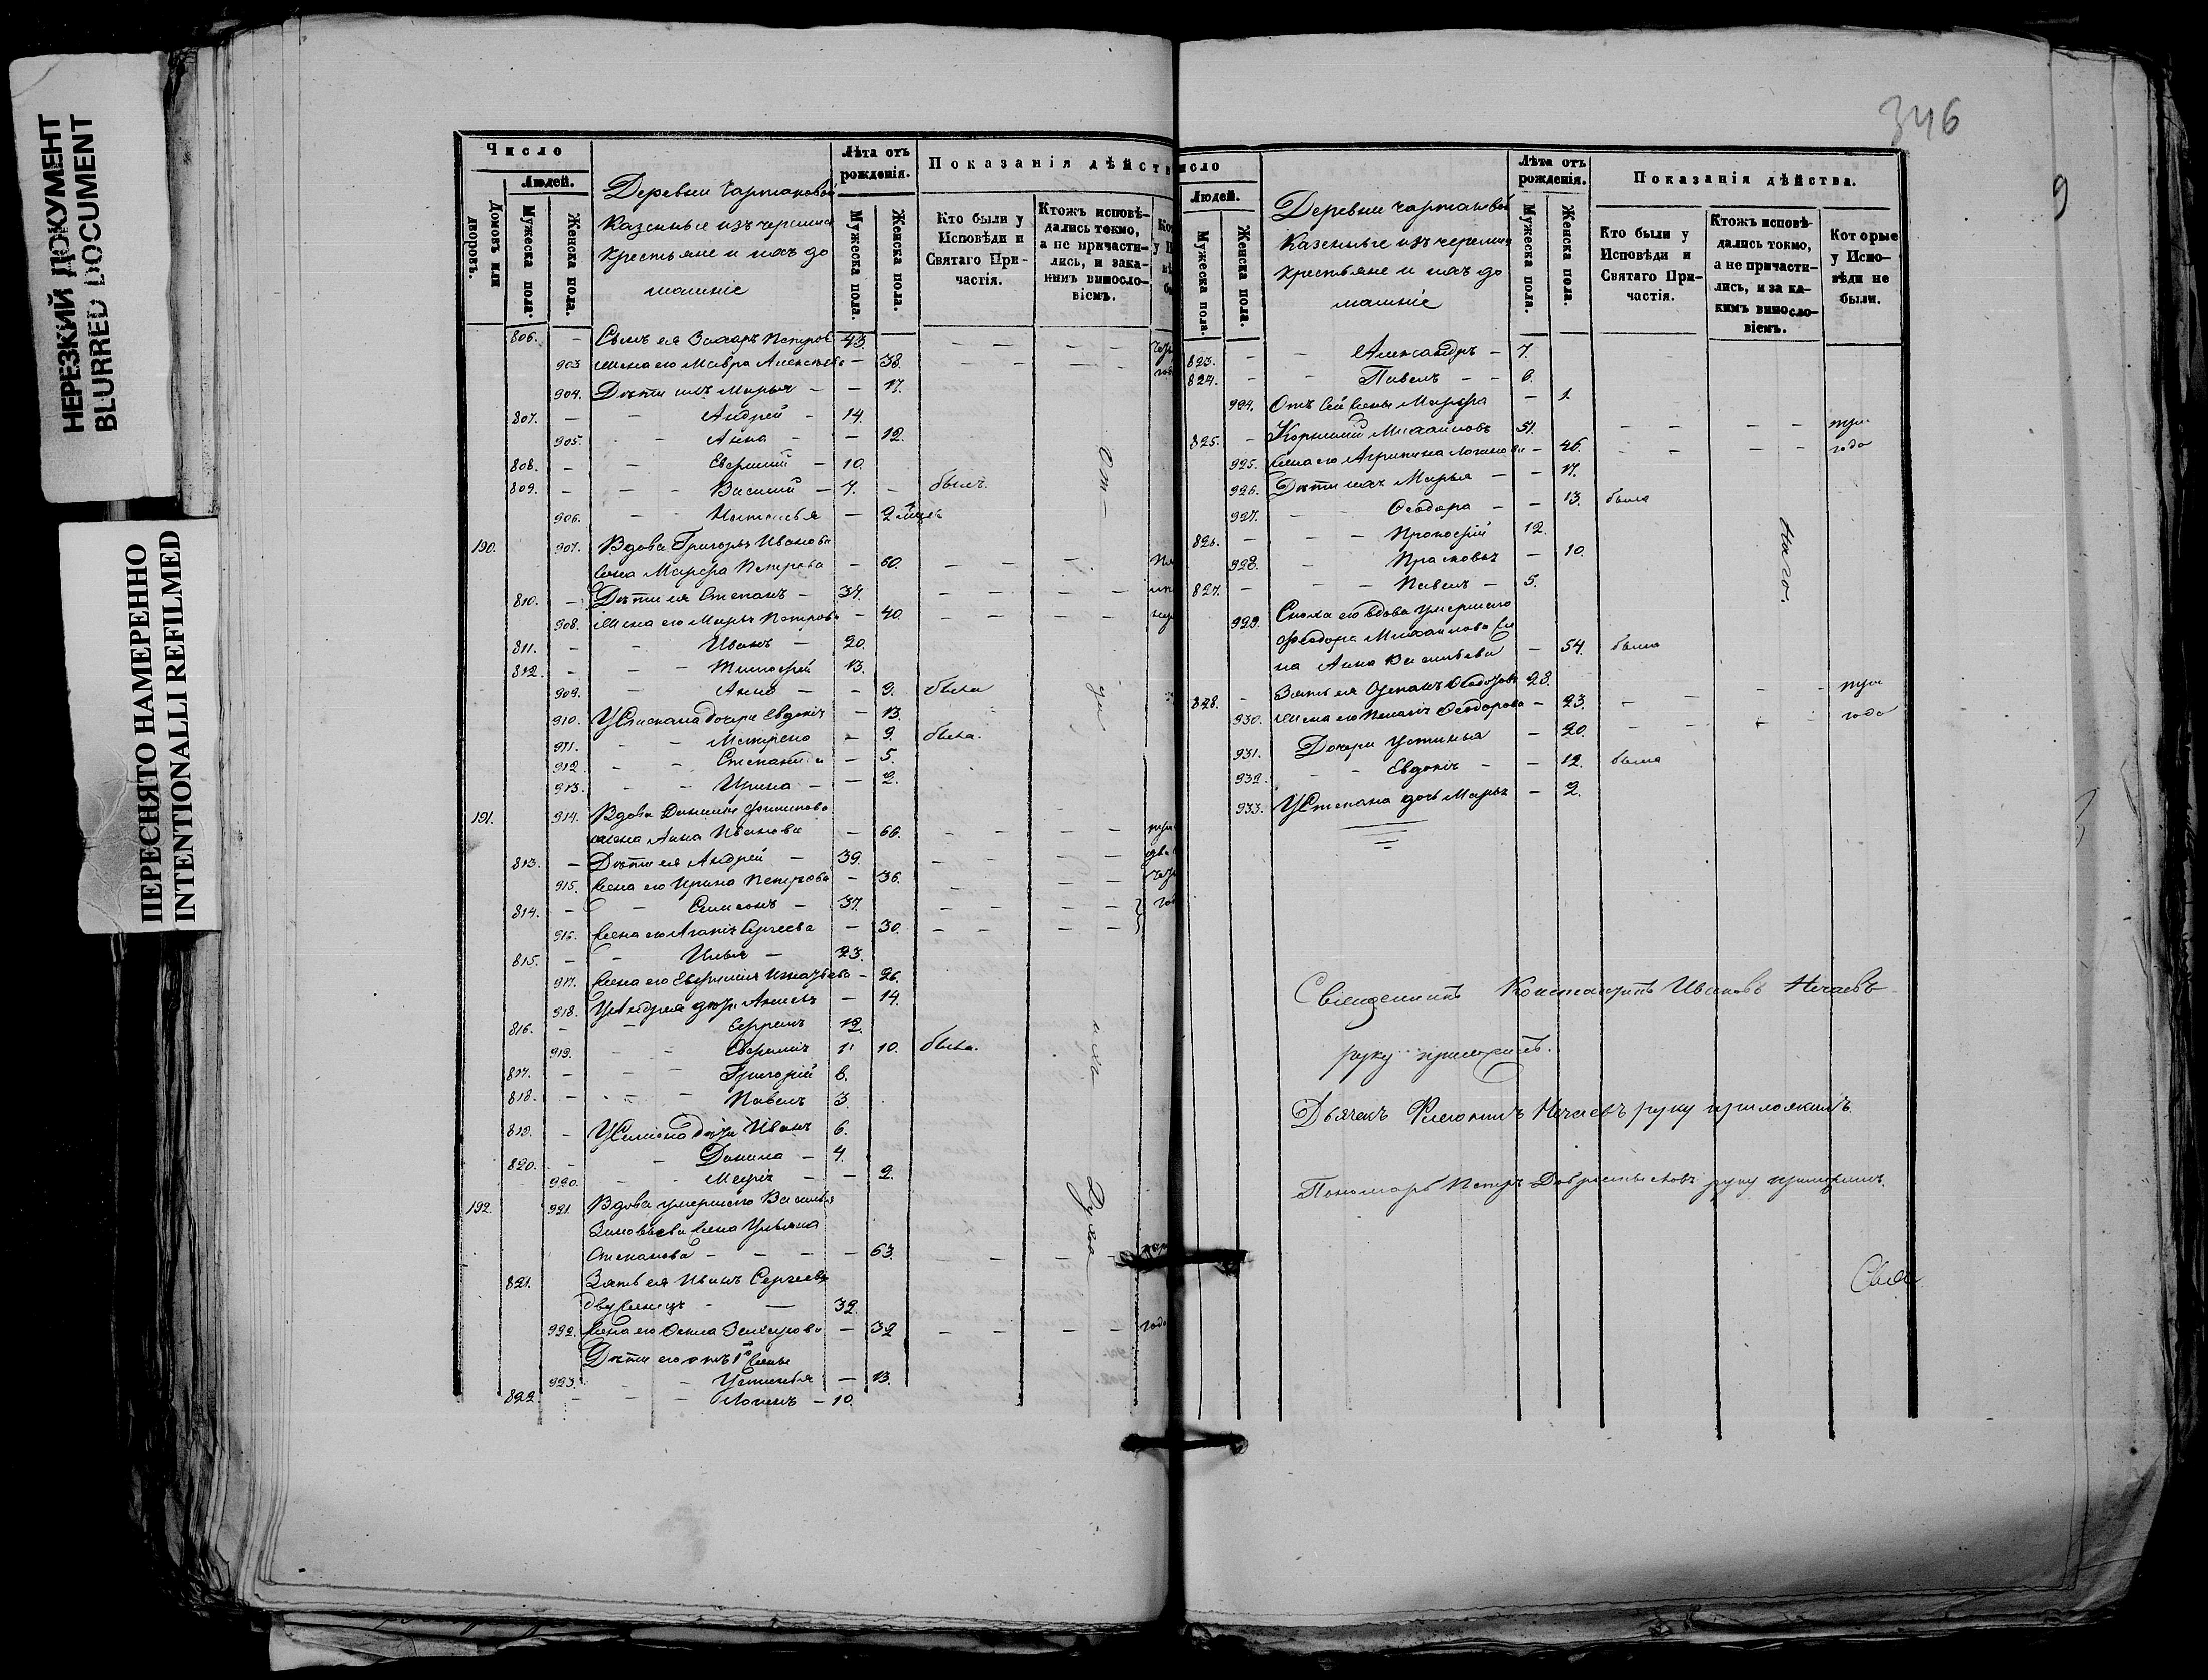 НЕРЕЗКИЙ ДОКУМЕНТ
BLURRED DOCUMENT
ПЕРЕСНЯТО НАМЕРЕННО
INTENTIONALLI REFILMED
Число
Людей.
Домовъ или дворовъ.
Мужеска пола.
Женска пола.
Деревни Чартаковой
Казенные изъ черемис
крестьяне и ихъ до
машніе
Лѣта отъ рожденія.
Мужеска пола.
Женска пола.
Показанія дѣйств
Кто были у Исповѣди и Святаго Причастія.
Ктожъ исповѣдались токмо, а не причастились, и закаким винословіемъ.
806. – Сынъ ея Захаръ Петровъ 43.
903 жена его Мавра Алексѣева – 38.
904. Дѣти ихъ Марья – – 17.
807. – – Андрей – 14.
905. – Анна – – 12.
808. – – Евфимій – 10.
809. – – – Василий – 7. – былъ.
906. – – Наталья – 2
190. 907. Вдова Григорья Иванова
жена Марфа Петрова – 60.
810. – Дѣти ея Степанъ – 37.
908. жена его Марья Петрова – 40.
811. – – Иванъ – 20.
812. – – – Тимофей 13.
909. – Анна – – 9. была
910. У Степана дочери Евдокія – 13.
911. – – Матрена – 9. была.
912. – – – 5.
913. – – Ирина – – 2.
191. 914. Вдова Данила Филипова
жена Анна Иванова – 66.
813. – Дѣти ея Андрей – 39.
915. жена его Ирина Петрова – 36.
814. – – Симеонъ – 37.
916. жена его Агапія Сергеева – 30.
815. – – Илья – 23.
917. жена его Евфимия Игнатьева – 26.
918. У Андрея дѣти – 14.
816. – – 12.
919. – – Евфимія 11 10. была.
817. – – – Григорій 6.
818. – – – Павелъ 3.
819. – У Симеона дѣти Иванъ 6.
820. – – Данила – 4.
920. – – Марія – – 2.
192. 921. Вдова умершаго Василья
Зиновьева жена Ульяна
Степанова – – – – 63.
821. Зять ея Иванъ Сергеевъ
двуженецъ – – 32.
922. жена его – 32
Дѣти его отъ 1й жены
923. – – Устинья – 13.
822. – – – Логинъ – 10
346
исло
Людей.
Мужеска пола.
Женска пола.
Деревни Чартаковой
Казенные изъ черемис
крестьяне и ихъ до
машніе
Лѣта отъ рожденія.
Мужеска пола.
Женска пола.
Показанія дѣйства.
Кто были у Исповѣди и Святаго Причастія.
Ктожъ исповѣдались токмо, а не причастились, и за какимъ винословіемъ.
Которые у Исповѣди не были.
823. – – Александръ – 7.
824. – – Павелъ – – 6.
994. Отъ сей жены Марфа – 1
825. – Корнилий Михайловъ 51. – – – – три
925. жена его Агрипина Логинова – 46. – – – – года
926. Дѣти ихъ Марья – – 17.
927. – – Ѳеодора – – 13. была
826. – – – Прокофій 12.
928. – Прасковья – 10.
827. – – – Павелъ – 5.
929. Сноха его вдова умершаго
Феодора Михайлова же
на Анна Васильева – 54. была
828. – Зять ея Степанъ Ѳеодоровъ 28. три
930. жена его Пелагія Ѳеодорова – 23. года
931. Дочери Устинья – 20.
932. – – Евдокія – – 12. была
933. У Степана дочь Марья – 2.
нато.
Священникъ Константинъ Ивановъ Нечаевъ
руку приложилъ.
Дьячекъ Филогоній Нечаевъ руку приложилъ.
Пономарь Петръ Добросмысловъ руку приложилъ.